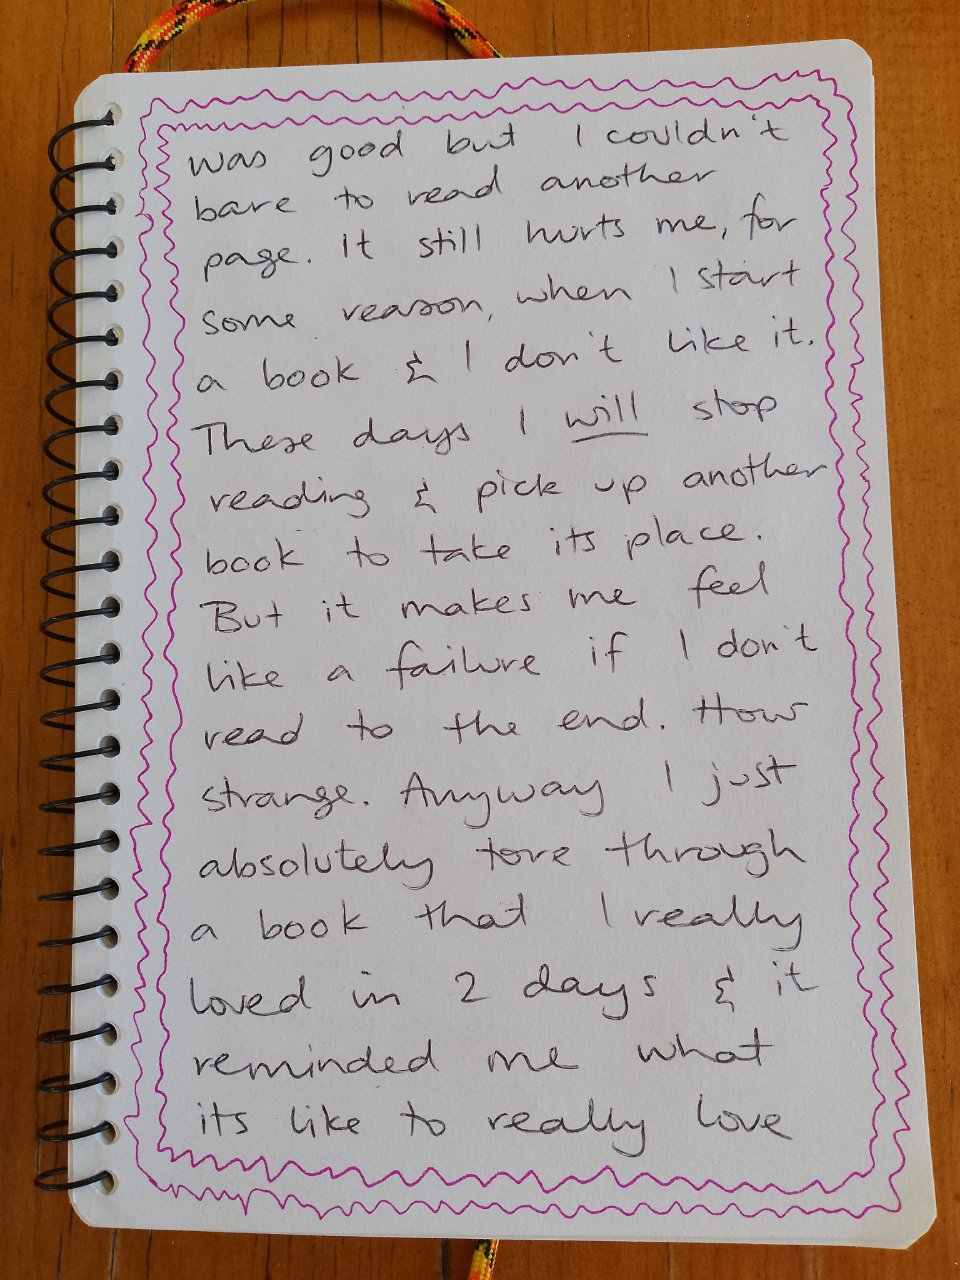 was good but I couldn't
bare to read another
page. It still hurts me, for
some reason, when I start
a book & I don't like it.
These days I will stop
reading & pick up another
book to take its place.
But it makes me feel
like a failure if I don't
read to the end. How
strange. Anyway I just
absolutely tore through
a book that I really
loved in 2 days & it
reminded me what
its like to really love